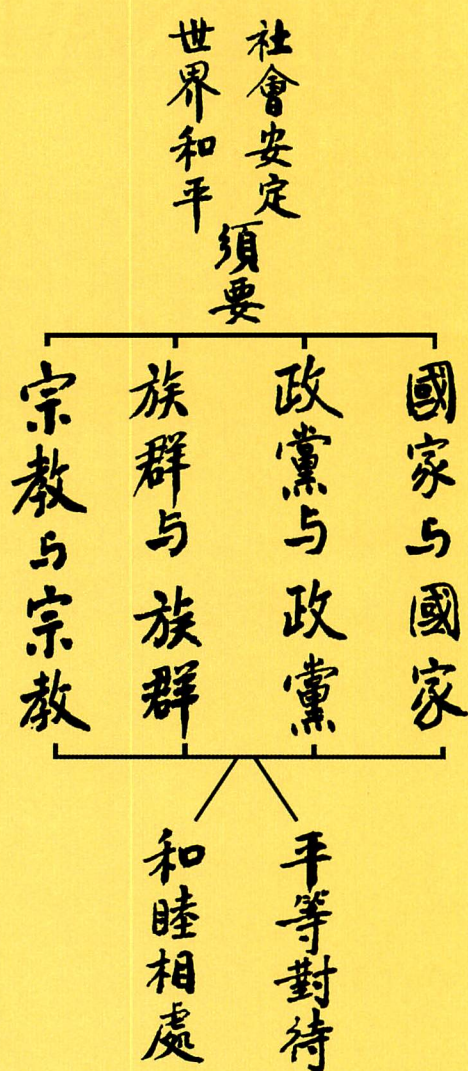 社會安定
世界和平
須要
國家与國家
政黨与政黨
族群与族群
宗教与宗教
平等對待
和睦相處